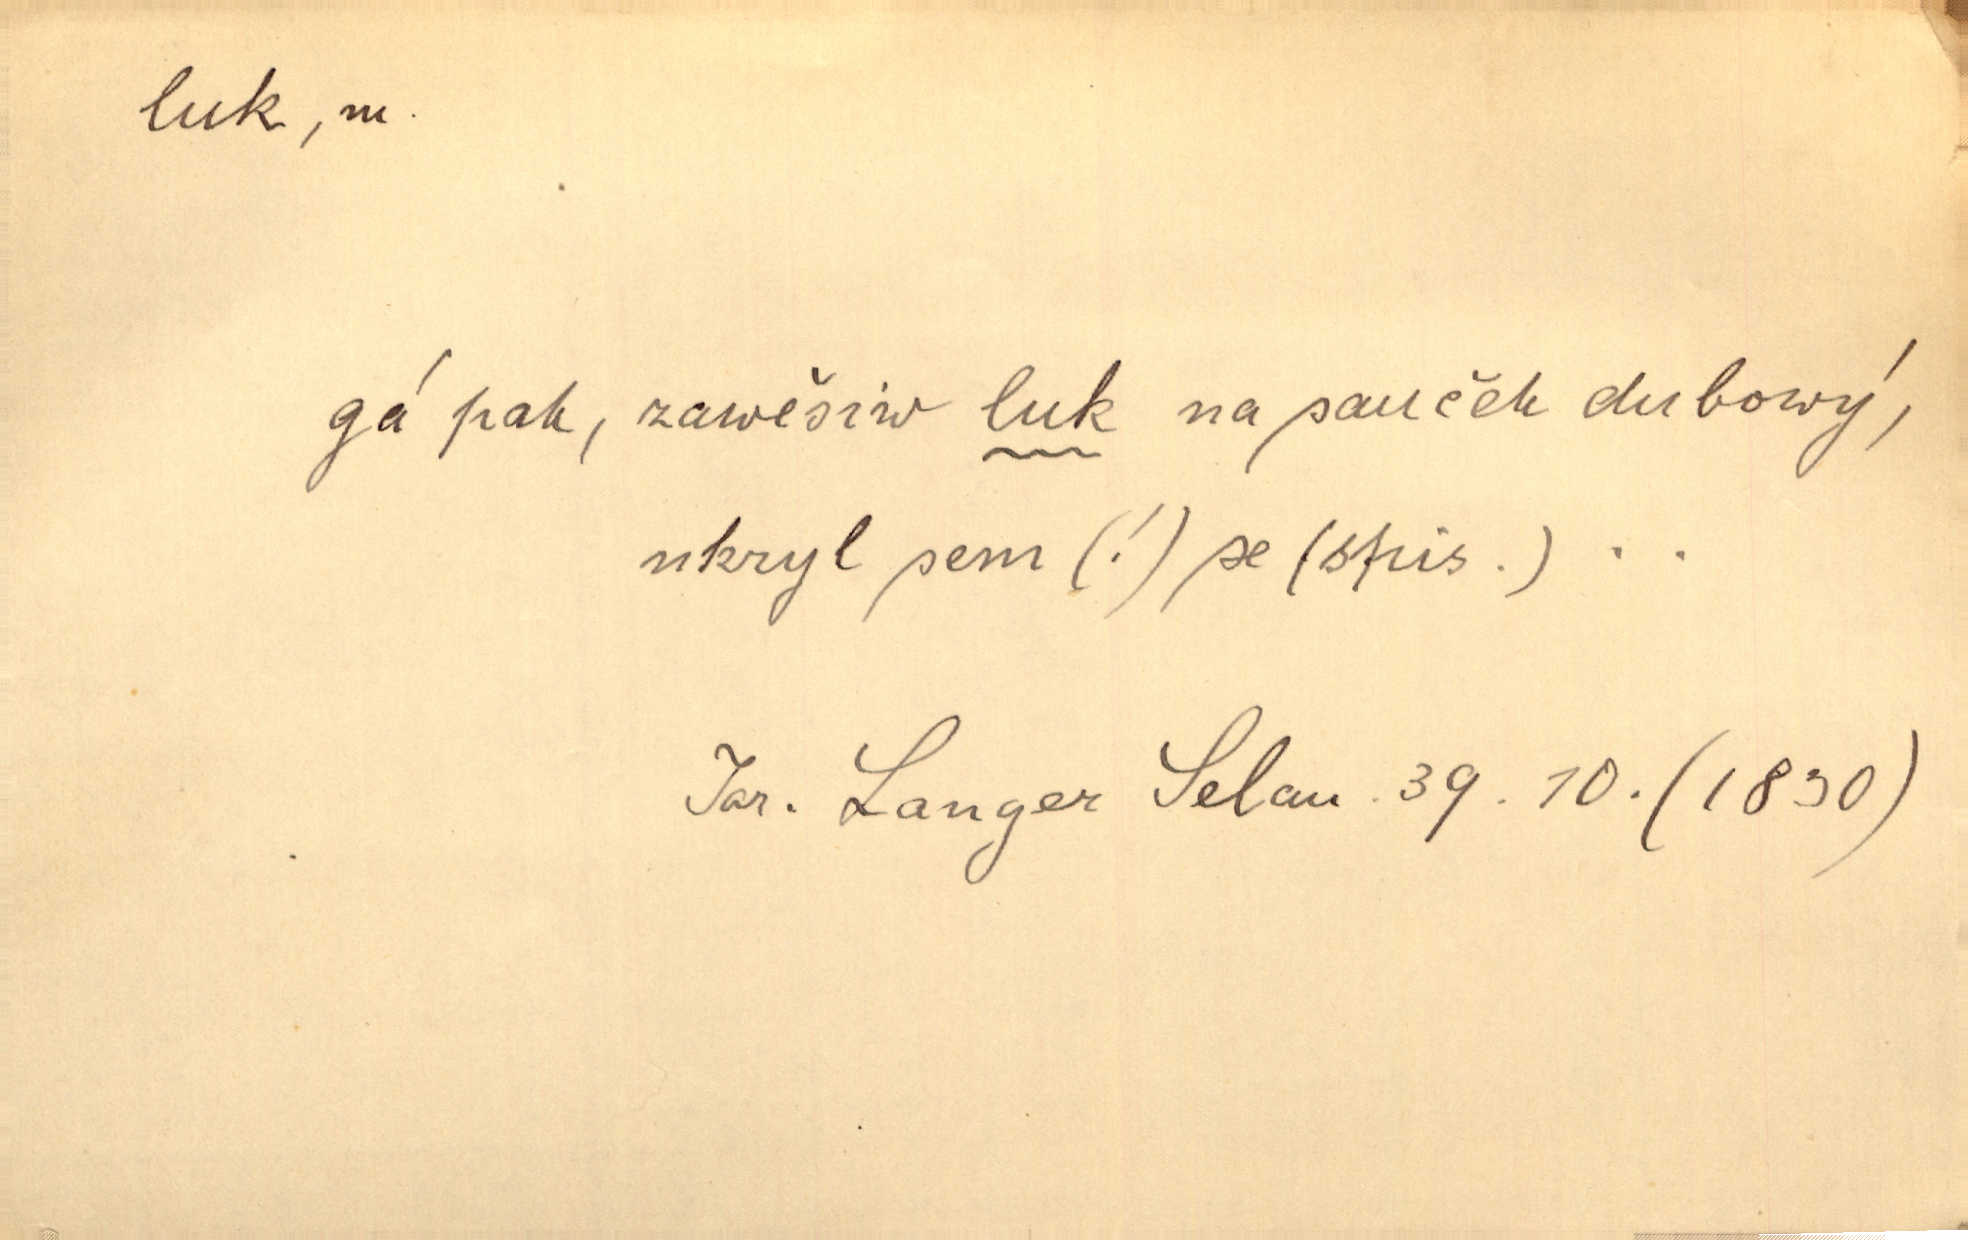 luk, m.
gá pak, zawěsiw luk na sauček dubowý,
ukryl sem (!) se (spis.) . .
Jar. Langer Selau. 39. 10. (1830)